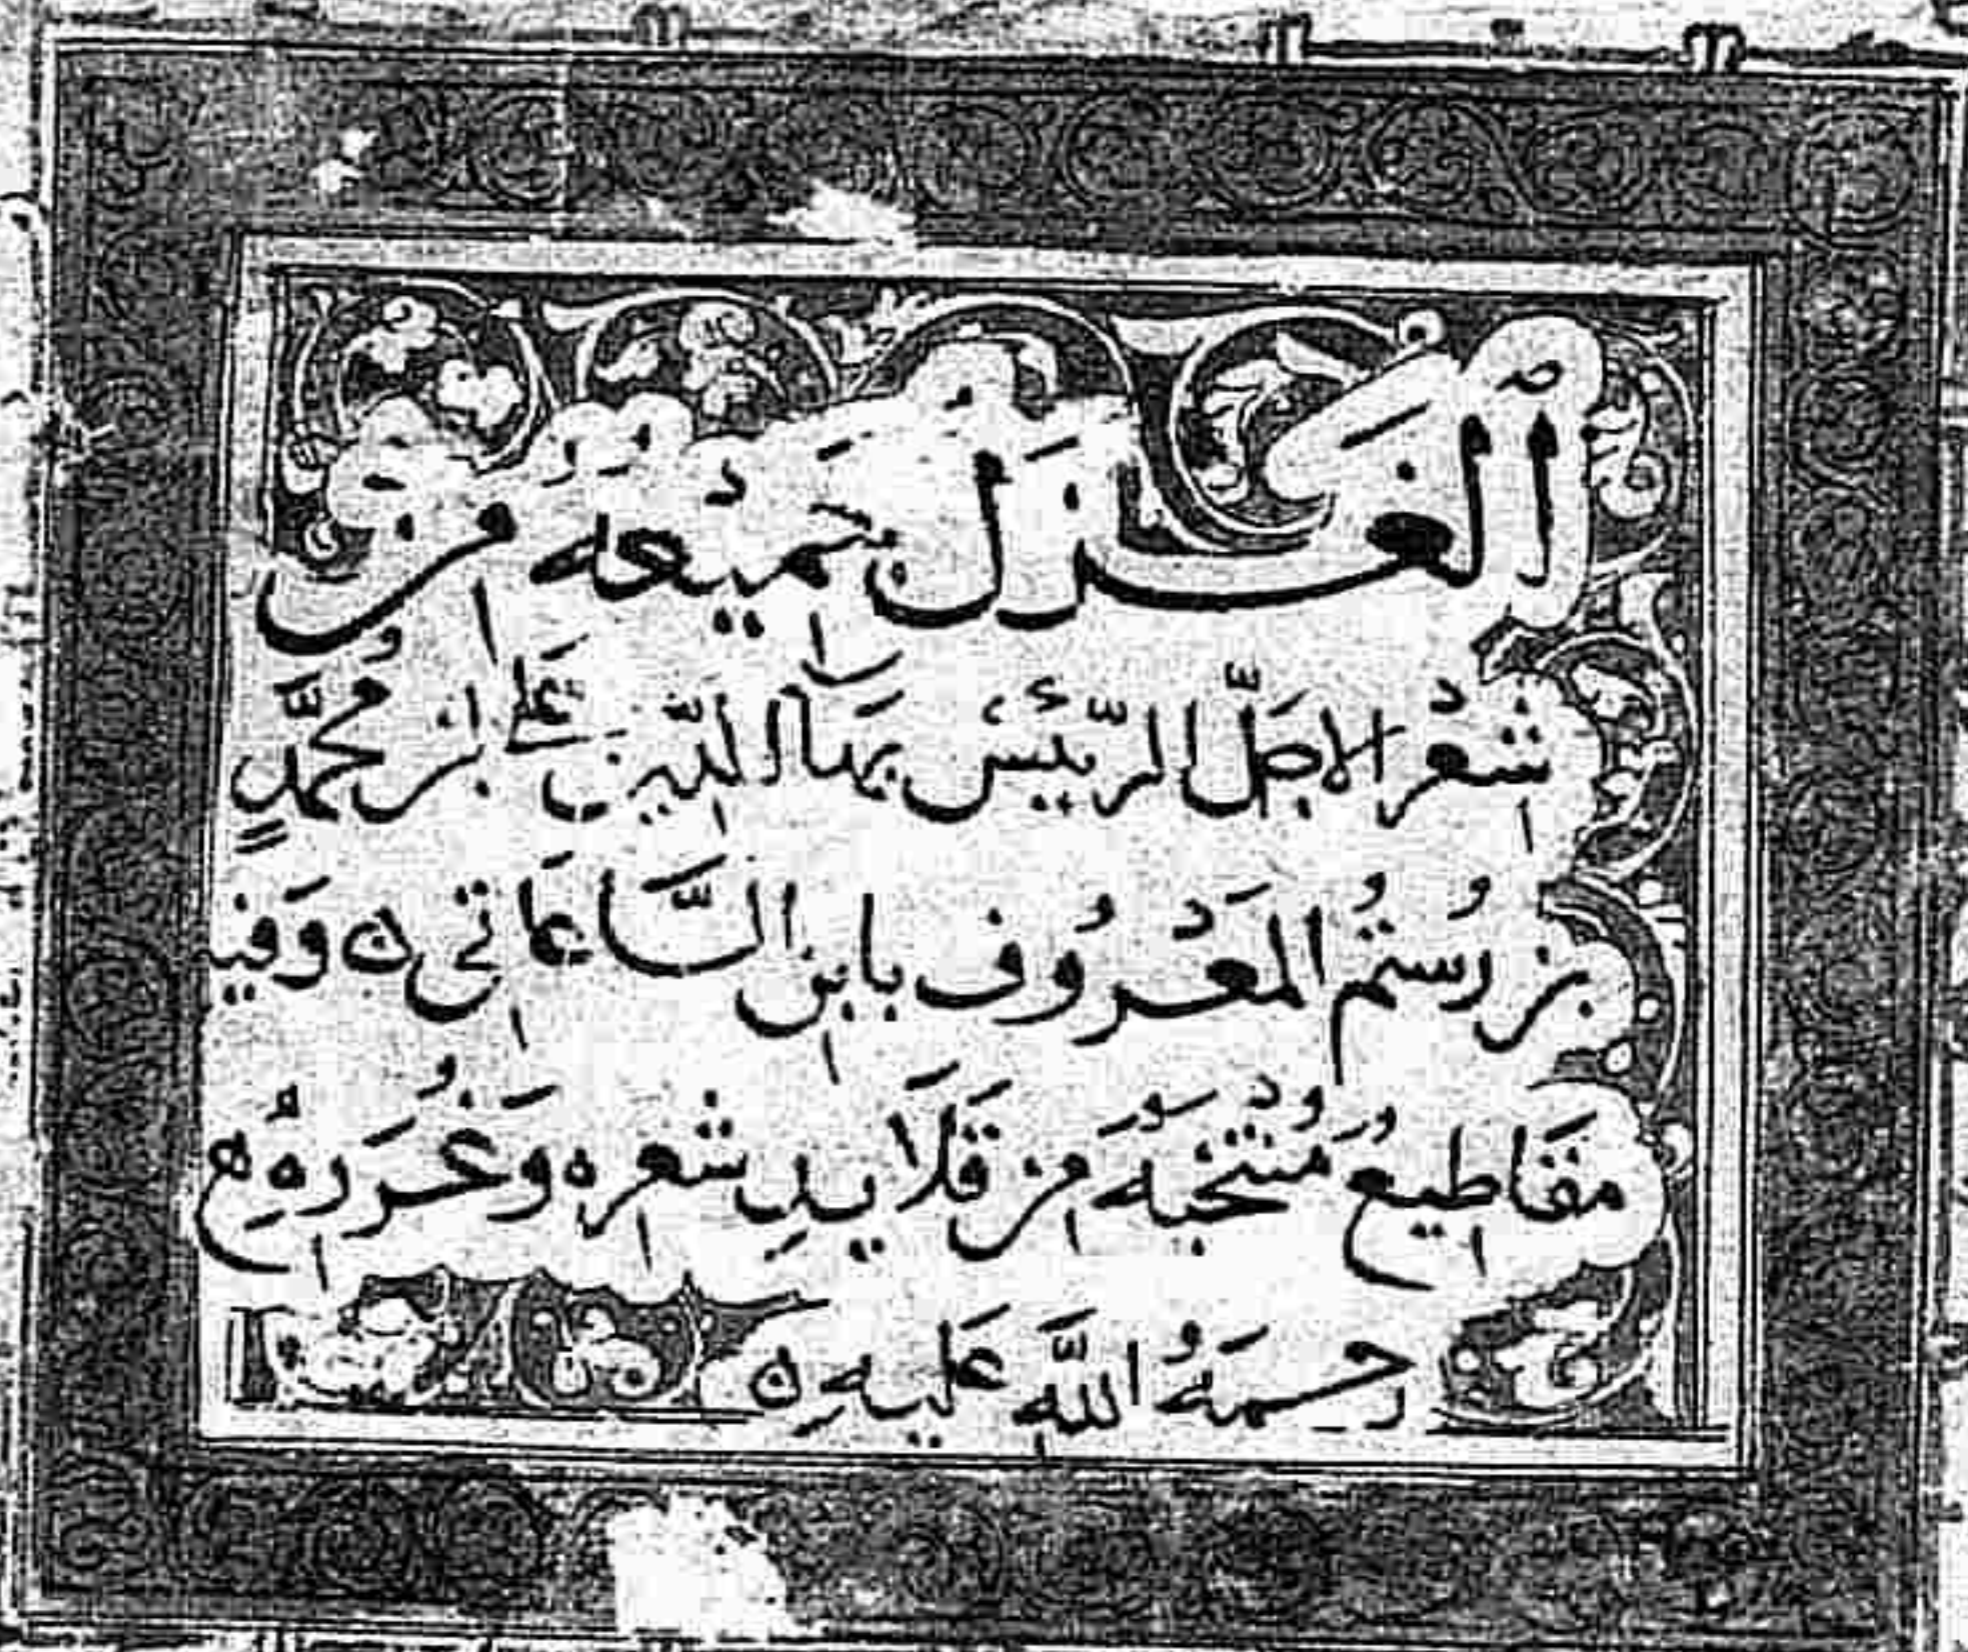 اَلْغَزَلُ جَمِيْعُهُ مِنْ
شِعْرِ الاَجَلِّ الرَّئيْس بَهَاءِ الدِّيْنِ عَلِي ابْنِ مُحَمَّدٍ
بْنِ رُسْتُمِ المَعْرُوف بابْنِ السَّاعَاتِي وَفيه
مَقَاطِيعُ مُنْتَخَبَةٌ مِنْ قَلَايِدِ شِعْرِهِ وَغُرَرِهِ
رَحْمَةُ اللهِ عَلَيهِ